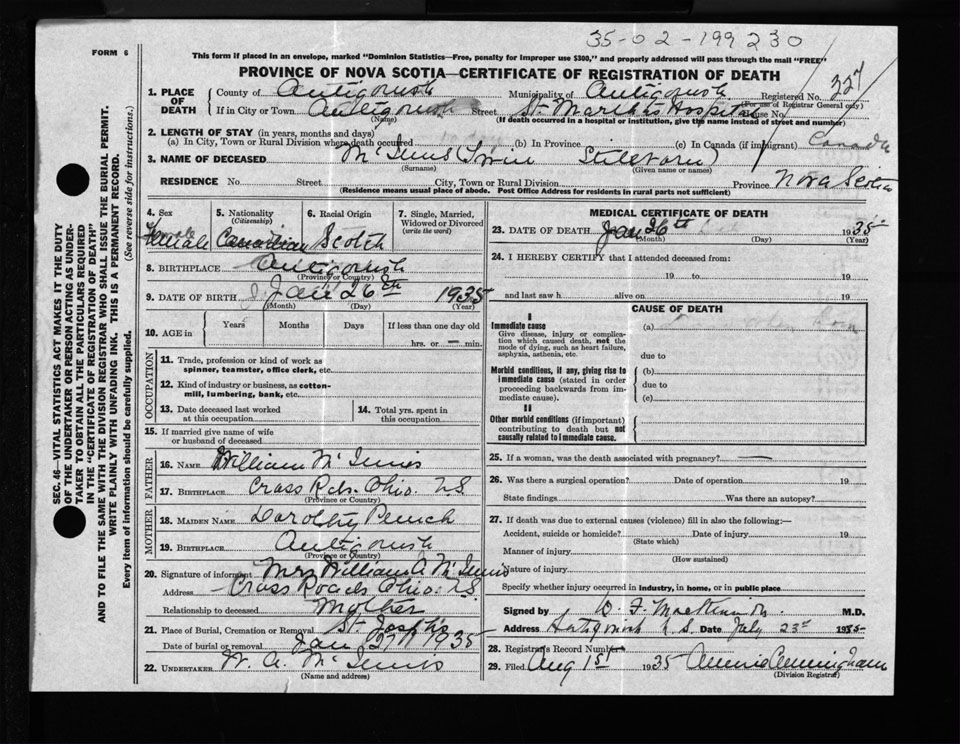 35-02-199230
FORM 6
This form if placed in an envelope, marked "Dominion Statistics—Free, penalty for improper use $300," and properly addressed will pass through the mail "FREE"
PROVINCE OF NOVA SCOTIA—CERTIFICATE OF REGISTRATION OF DEATH
327
1. PLACE OF DEATH
County of Antigonish Municipality of Antigonish Registered No.
(For use of Registrar General only)
If in City or Town Antigonish Street St. Martha's Hospital House No.
(Name) (If death occurred in a hospital or institution, give the name instead of street and number)
2. LENGTH OF STAY (in years, months and days)
(a) In City, Town or Rural Division where death occurred (b) In Province (c) In Canada (if immigrant) Canada
3. NAME OF DECEASED McInnis (Twin Stillborn)
(Surname) (Given name or names)
RESIDENCE No. Street City, Town or Rural Division Province Nova Scotia
(Residence means usual place of abode. Post Office Address for residents in rural parts not sufficient)
4. Sex
Female
5. Nationality
(Citizenship)
Canadian
6. Racial Origin
Scotch
7. Single, Married, Widowed or Divorced
(write the word)
8. BIRTHPLACE Antigonish
(Province or Country)
9. DATE OF BIRTH Jan 26th 1935
(Month) (Day) (Year)
10. AGE in Years Months Days If less than one day old
hrs. or — min.
OCCUPATION
11. Trade, profession or kind of work as
spinner, teamster, office clerk, etc.
12. Kind of industry or business, as cotton-
mill, lumbering, bank, etc.
13. Date deceased last worked
at this occupation
14. Total yrs. spent in
this occupation
15. If married give name of wife
or husband of deceased
FATHER
16. NAME William McInnis
17. BIRTHPLACE Cross Rds. Ohio. N.S.
(Province or Country)
MOTHER
18. MAIDEN NAME Dorothy
19. BIRTHPLACE Antigonish
(Province or Country)
20. Signature of informant Mrs William A McInnis
Address Cross Roads Ohio. N.S.
Relationship to deceased Mother
21. Place of Burial, Cremation or Removal St. Joseph's
Date of burial or removal Jan 27th 1935
22. UNDERTAKER W. A. McInnis
(Name and address)
MEDICAL CERTIFICATE OF DEATH
23. DATE OF DEATH Jan 26th 1935
(Month) (Day) (Year)
24. I HEREBY CERTIFY that I attended deceased from:
19 to 19
and last saw h alive on 19
CAUSE OF DEATH
I
Immediate cause
Give disease, injury or complica-
tion which caused death, not the
mode of dying, such as heart failure,
asphyxia, asthenia, etc.
(a)
due to
Morbid conditions, if any, giving rise to
immediate cause (stated in order
proceeding backwards from im-
mediate cause).
(b)
due to
(c)
II
Other morbid conditions (if important)
contributing to death but not
causally related to immediate cause.
25. If a woman, was the death associated with pregnancy? —
26. Was there a surgical operation? Date of operation 19
State findings Was there an autopsy?
27. If death was due to external causes (violence) fill in also the following:—
Accident, suicide or homicide? Date of injury 19
(State which)
Manner of injury
(How sustained)
Nature of injury
Specify whether injury occurred in industry, in home, or in public place
Signed by M.D.
Address Antigonish N.S. Date July 23rd 1935
28. Registrar's Record Number
29. Filed Aug 1st 1935 Annie Cunningham
(Division Registrar)
SEC. 46—VITAL STATISTICS ACT MAKES IT THE DUTY
OF THE UNDERTAKER OR PERSON ACTING AS UNDER-
TAKER TO OBTAIN ALL THE PARTICULARS REQUIRED
IN THE "CERTIFICATE OF REGISTRATION OF DEATH"
AND TO FILE THE SAME WITH THE DIVISION REGISTRAR WHO SHALL ISSUE THE BURIAL PERMIT.
WRITE PLAINLY WITH UNFADING INK. THIS IS A PERMANENT RECORD.
Every item of information should be carefully supplied. (See reverse side for instructions.)